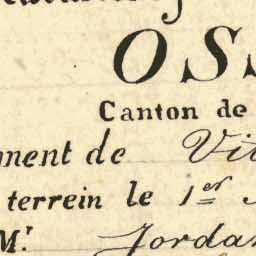 OSS
Canton de
ment de Vit
terrein le 1er
Mr. Jordan